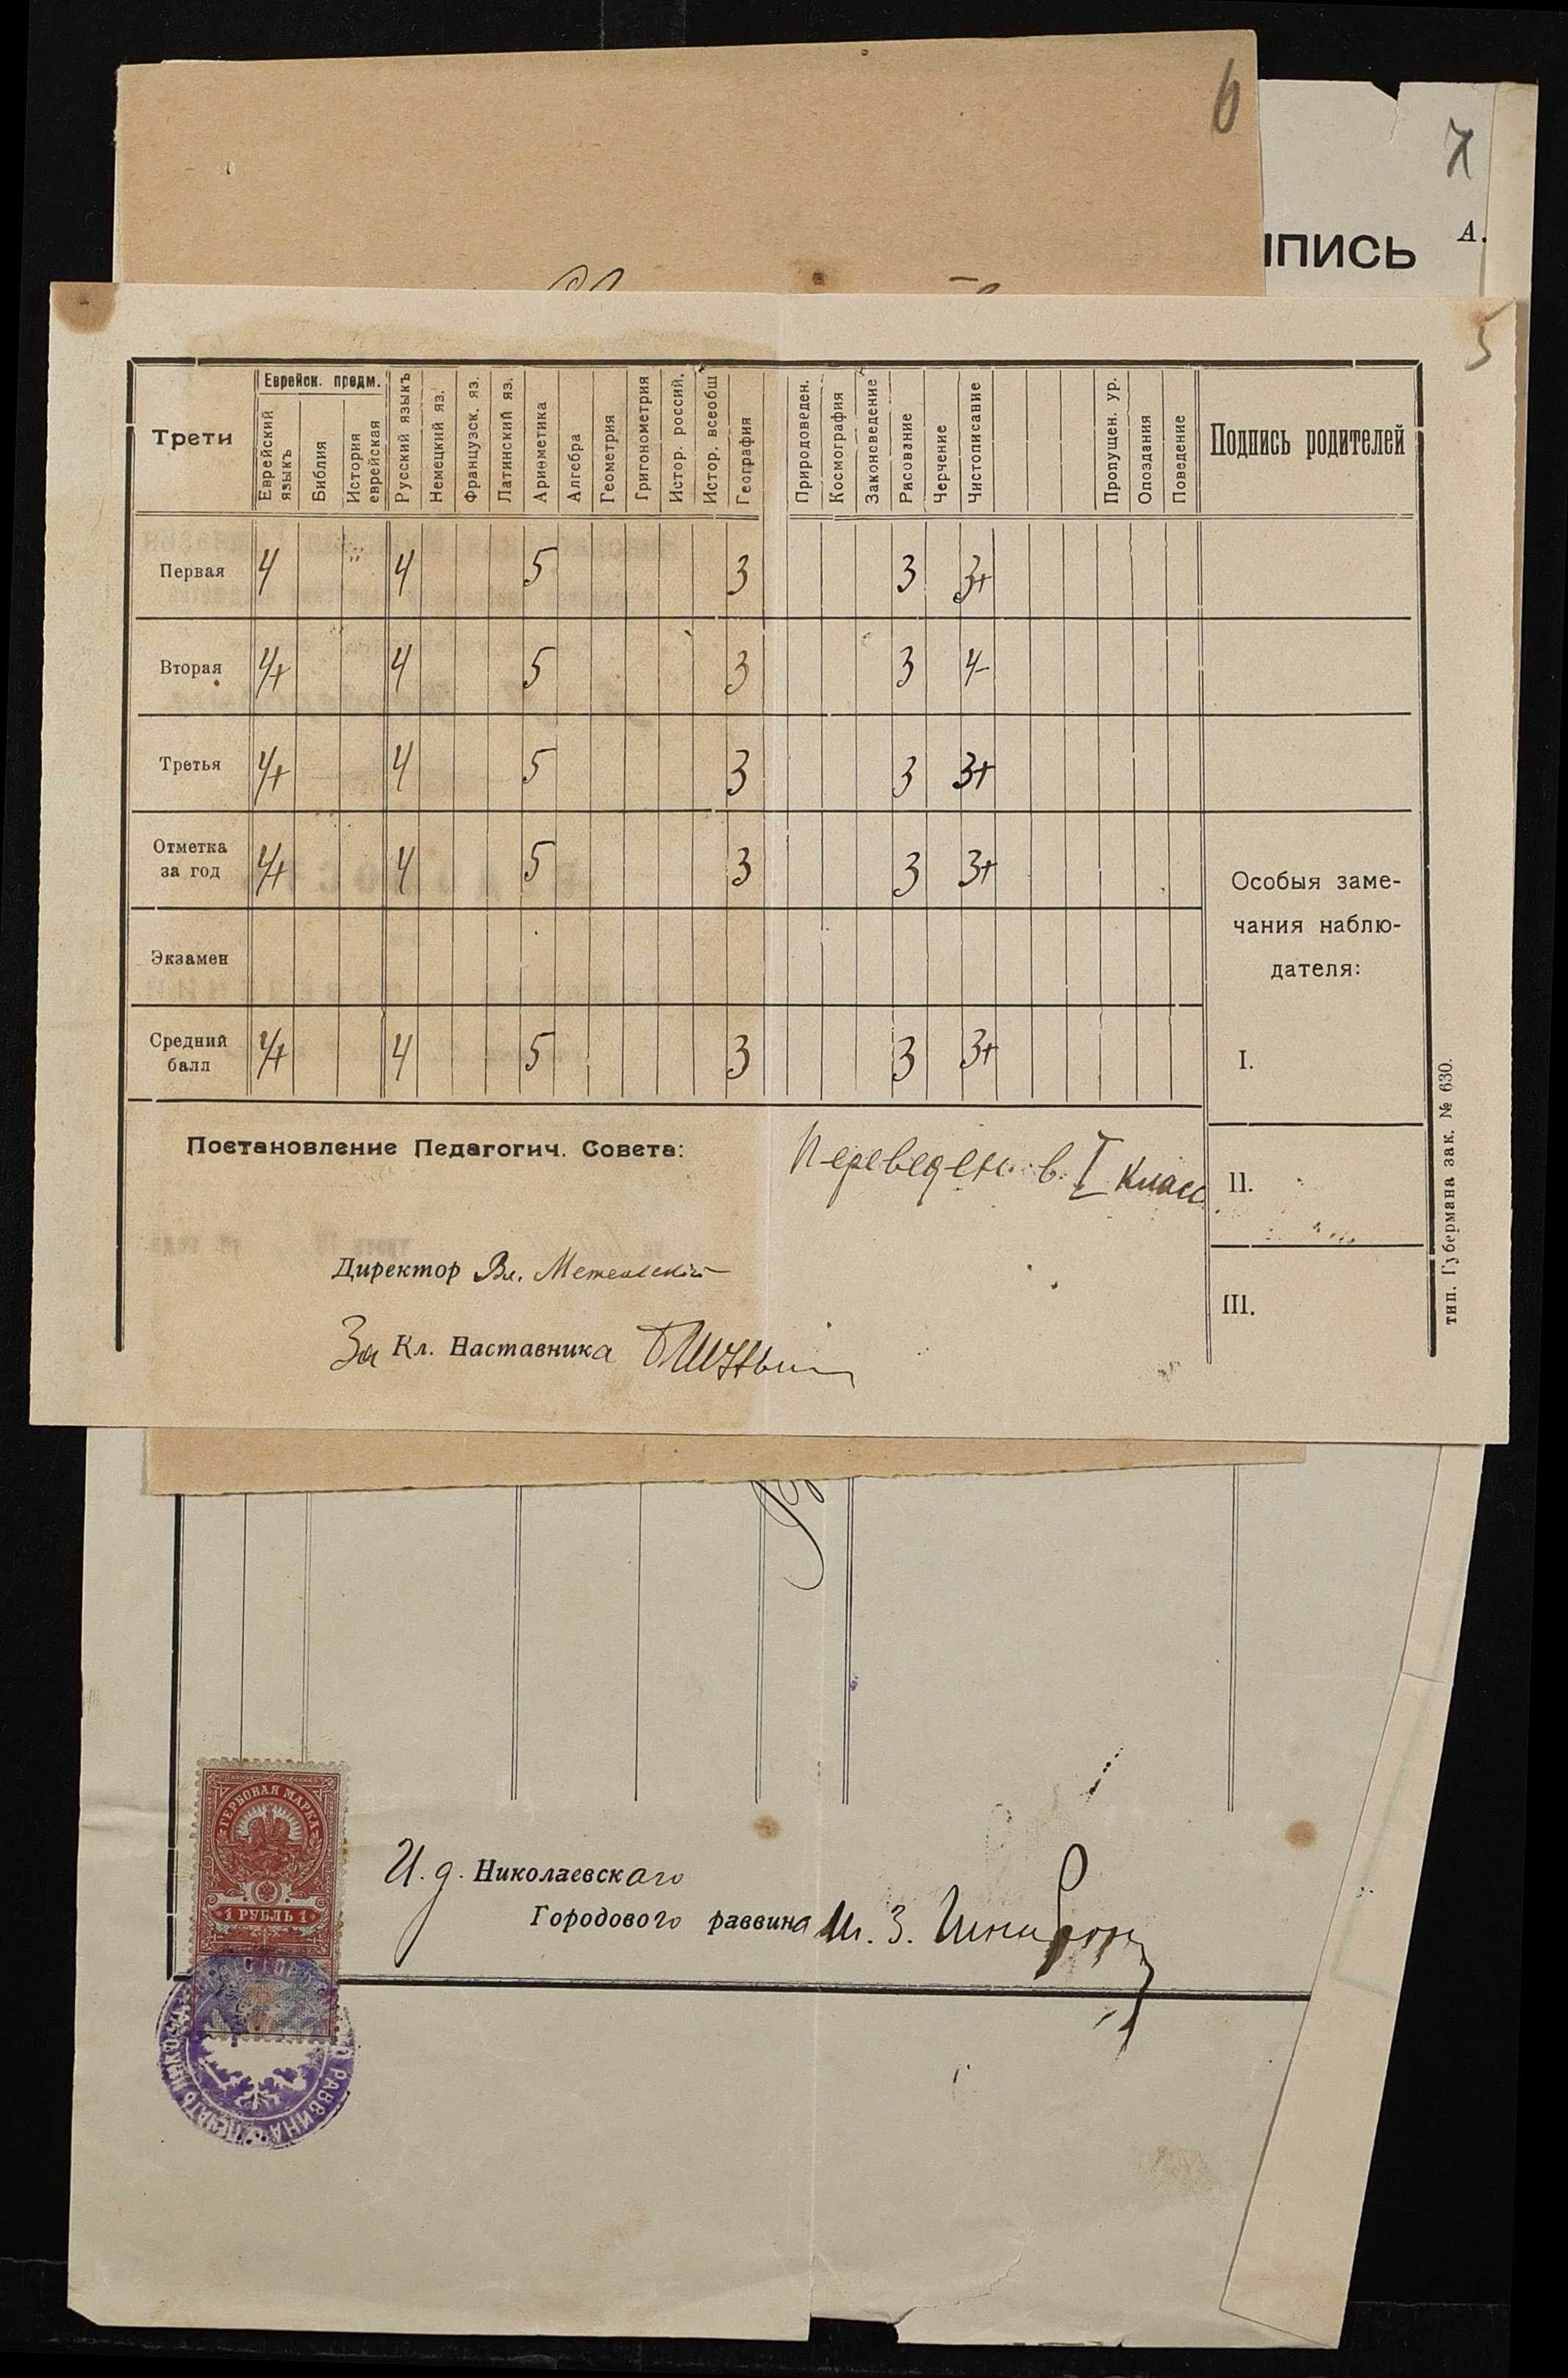 6
7
А.
ПИСЬ
5
Трети
Еврейск. предм.
Еврейский языкъ
Библия
История еврейская
Русский языкъ
Немецкий яз.
Французск. яз.
Латинский яз.
Ариѳметика
Алгебра
Геометрия
Григонометрия
Истор. россий.
Истор. всеобщ
География
Природоведен.
Космография
Законоведение
Рисование
Черчение
Чистописание
Пропущен. ур.
Опоздания
Поведение
Подпись родителей
Первая 4 " 4 5 3 3 3+
Вторая 4+ 4 5 3 3 4-
Третья 4+ 4 5 3 3 3+
Отметка за год 4+ 4 5 3 3 3+
Экзамен
Средний балл 4+ 4 5 3 3 3+
Особыя заме-
чания наблю-
дателя:
I.
II.
III.
Постановление Педагогич. Совета:
Переведен в I класс
Директор Вл.
За Кл. Наставника
тип. Губермана зак. № 630.
ГЕРБОВАЯ МАРКА
1 РУБЛЬ 1
И. д. Николаевскаго
Городового раввина М. З.
РАВВИНА ПЕЧАТЬ